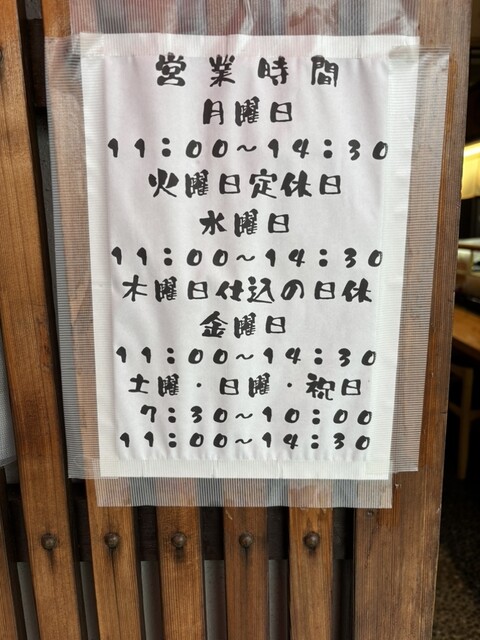 営業時間
月曜日
11:00~14:30
火曜日定休日
水曜日
11:00~14:30
木曜日仕込の日休
金曜日
11:00~14:30
土曜・日曜・祝日
7:30~10:00
11:00~14:30